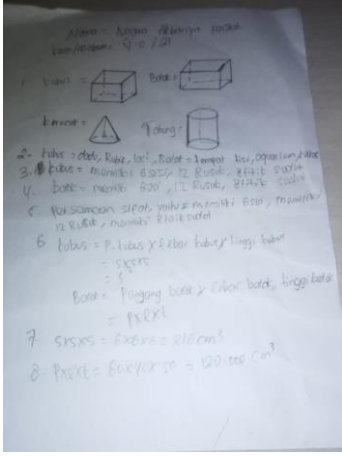 Nama =
1. kubus = Balok =
kerucut = Tabung =
2. kubus = dadu, Rubik, laci, Balok =
3. kubus = memiliki 6 sisi, 12 Rusuk, 8 titik sudut
4. balok = memiliki 6 sisi, 12 Rusuk, 8 titik sudut
5. Persamaan sifat, yaitu memiliki 6 sisi, memiliki
12 Rusuk, memiliki 8 titik sudut
6 kubus = P. kubus x lebar kubus x tinggi kubus
= sxsxs
Balok = Panjang balok x lebar balok, tinggi balok
= Pxlxt
7. sxsxs = 6x6x6 = 216 cm³
8. Pxlxt = 60x40x50 = 120.000 cm³